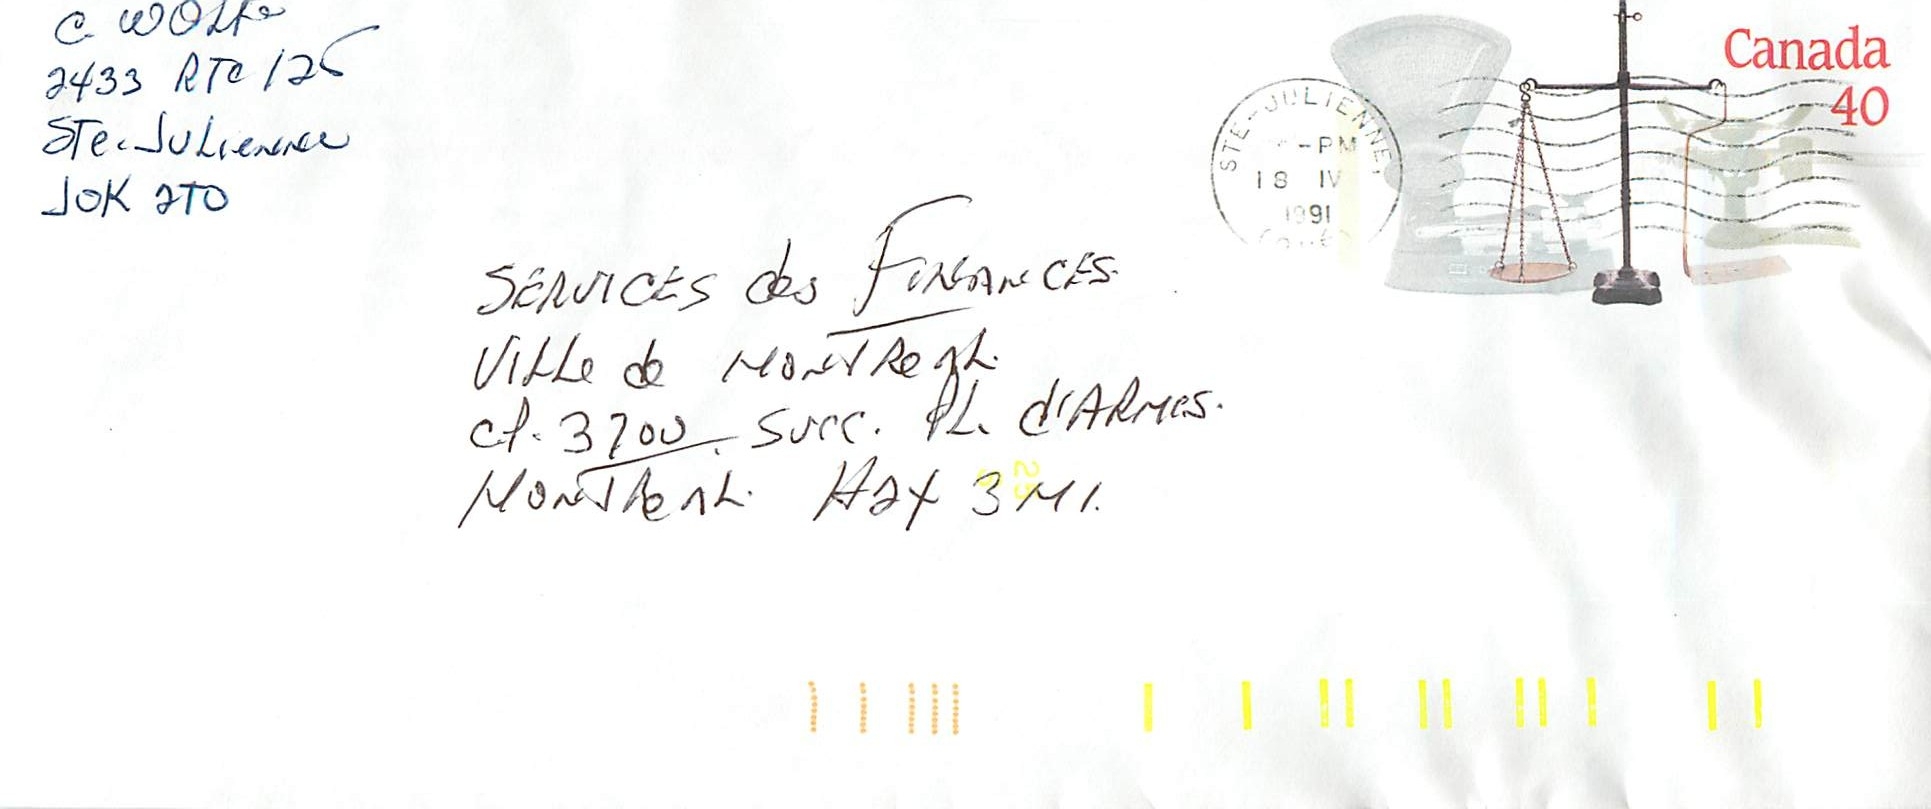 C. WOLFE
2433 RTE 125
STe-Julienne
J0K 2T0
Canada
40
STE-JULIENNE
-PM
18 IV
1991
SERVICES des FINANCES.
Ville de MONTREAL.
C.P. 3700 SUCC. PL. d'ARMES.
MONTREAL. H2Y 3M1.
25